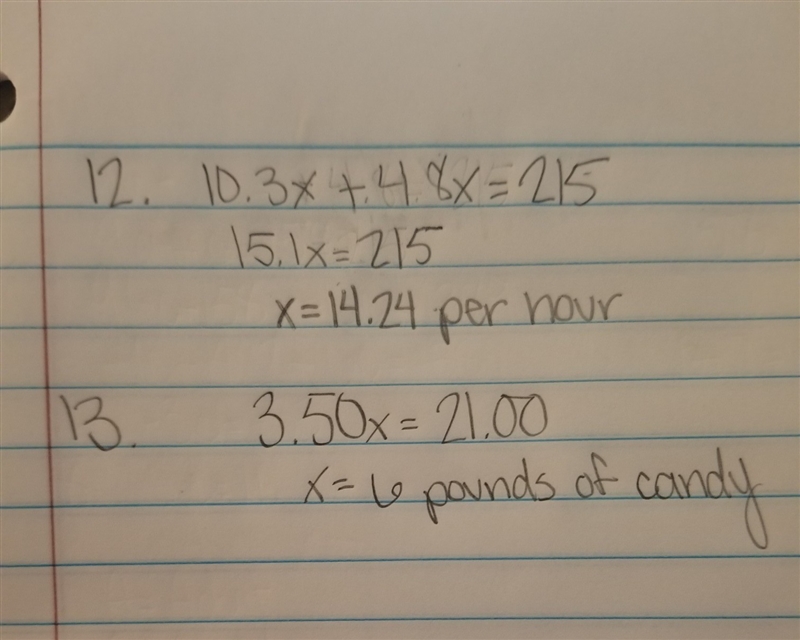 12. 10.3x + 4.8x = 215
15.1x = 215
x = 14.24 per hour
13. 3.50x = 21.00
x = 6 pounds of candy